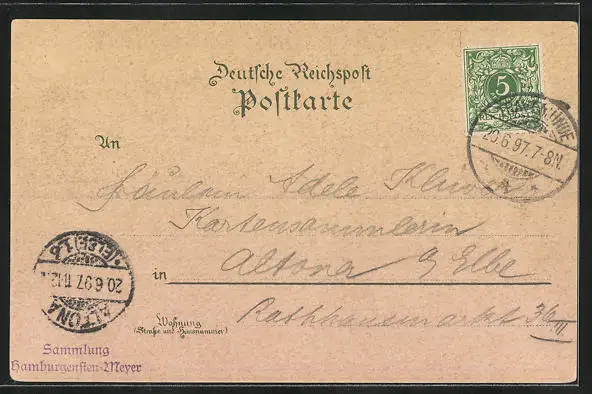 Deutsche Reichspost
Postkarte
5
20.6.97.7-8N.
An
Fräulein Adele
Kartensammlerin
in Altona a/Elbe
Wohnung
(Straße und Hausnummer)
Rathhausmarkt 36 III.
ALTONA
20.6.97 11-12
(ELBE) 1.
Sammlung
Hamburgensien-Meyer